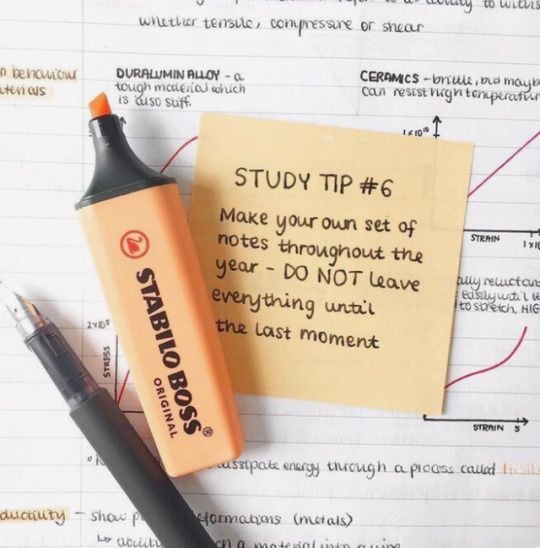 ability to withs
whether tensile, compressive or shear
behaviour
DURALUMIN ALLOY - a
tough material which
is also stiff
CERAMICS - brittle, but mayb
can resist high temperatur
1x10¹⁰
STUDY TIP #6
Make your own set of
notes throughout the
year - DO NOT leave
everything until
the last moment
STRAIN 1x10
ally reluctan
easily until
to stretch. HIG
STABILO BOSS®
ORIGINAL
2x10⁸
STRESS
STRAIN 5
dissipate energy through a process called
ductility - show deformations (metals)
a material into a wire